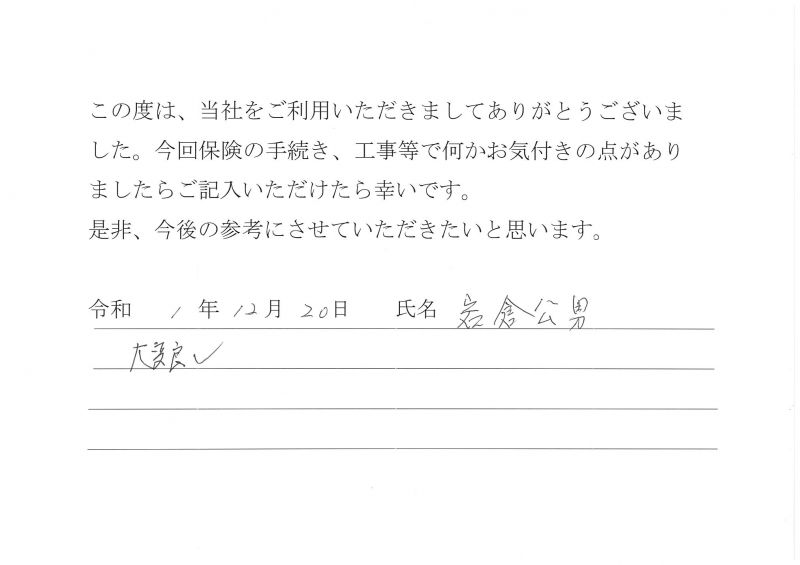 この度は、当社をご利用いただきましてありがとうございま
した。今回保険の手続き、工事等で何かお気付きの点があり
ましたらご記入いただけたら幸いです。
是非、今後の参考にさせていただきたいと思います。
令和 1 年 12月 20日 氏名 岩倉公男
大変良い